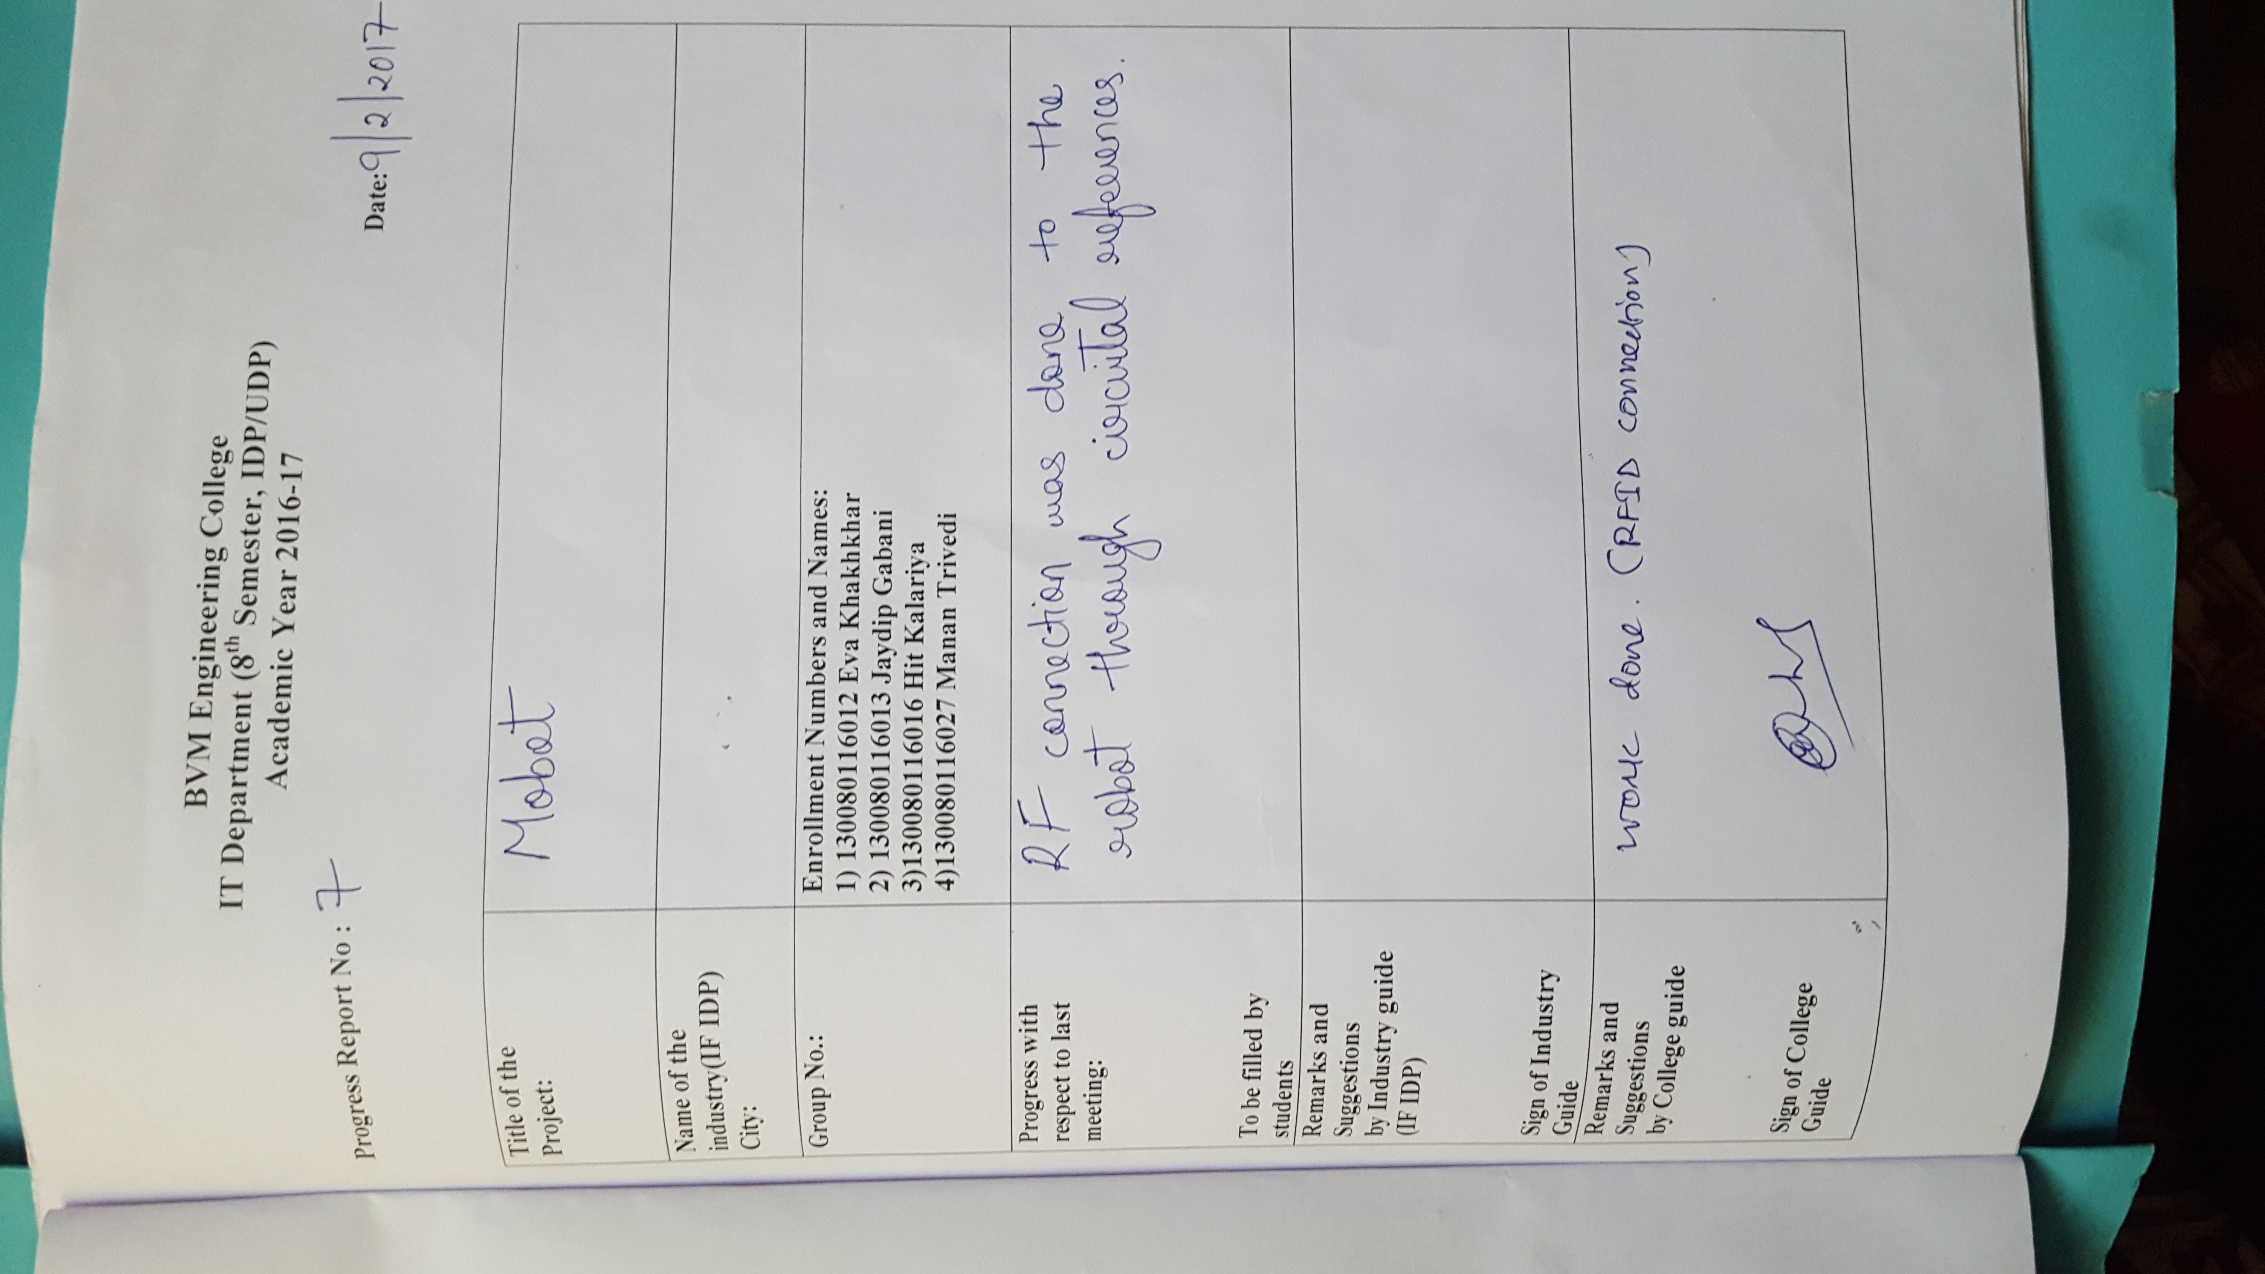 BVM Engineering College
IT Department (8th Semester, IDP/UDP)
Academic Year 2016-17
Progress Report No : 7
Date: 9/2/2017
Title of the
Project:
Mobot
Name of the
industry(IF IDP)
City:
Group No.:
Enrollment Numbers and Names:
1) 130080116012 Eva Khakhkhar
2) 130080116013 Jaydip Gabani
3)130080116016 Hit Kalariya
4)130080116027 Manan Trivedi
Progress with
respect to last
meeting:
To be filled by
students
RF connection was done to the
robot through circuital references.
Remarks and
Suggestions
by Industry guide
(IF IDP)
Sign of Industry
Guide
Remarks and
Suggestions
by College guide
work done. (RFID connection)
Sign of College
Guide